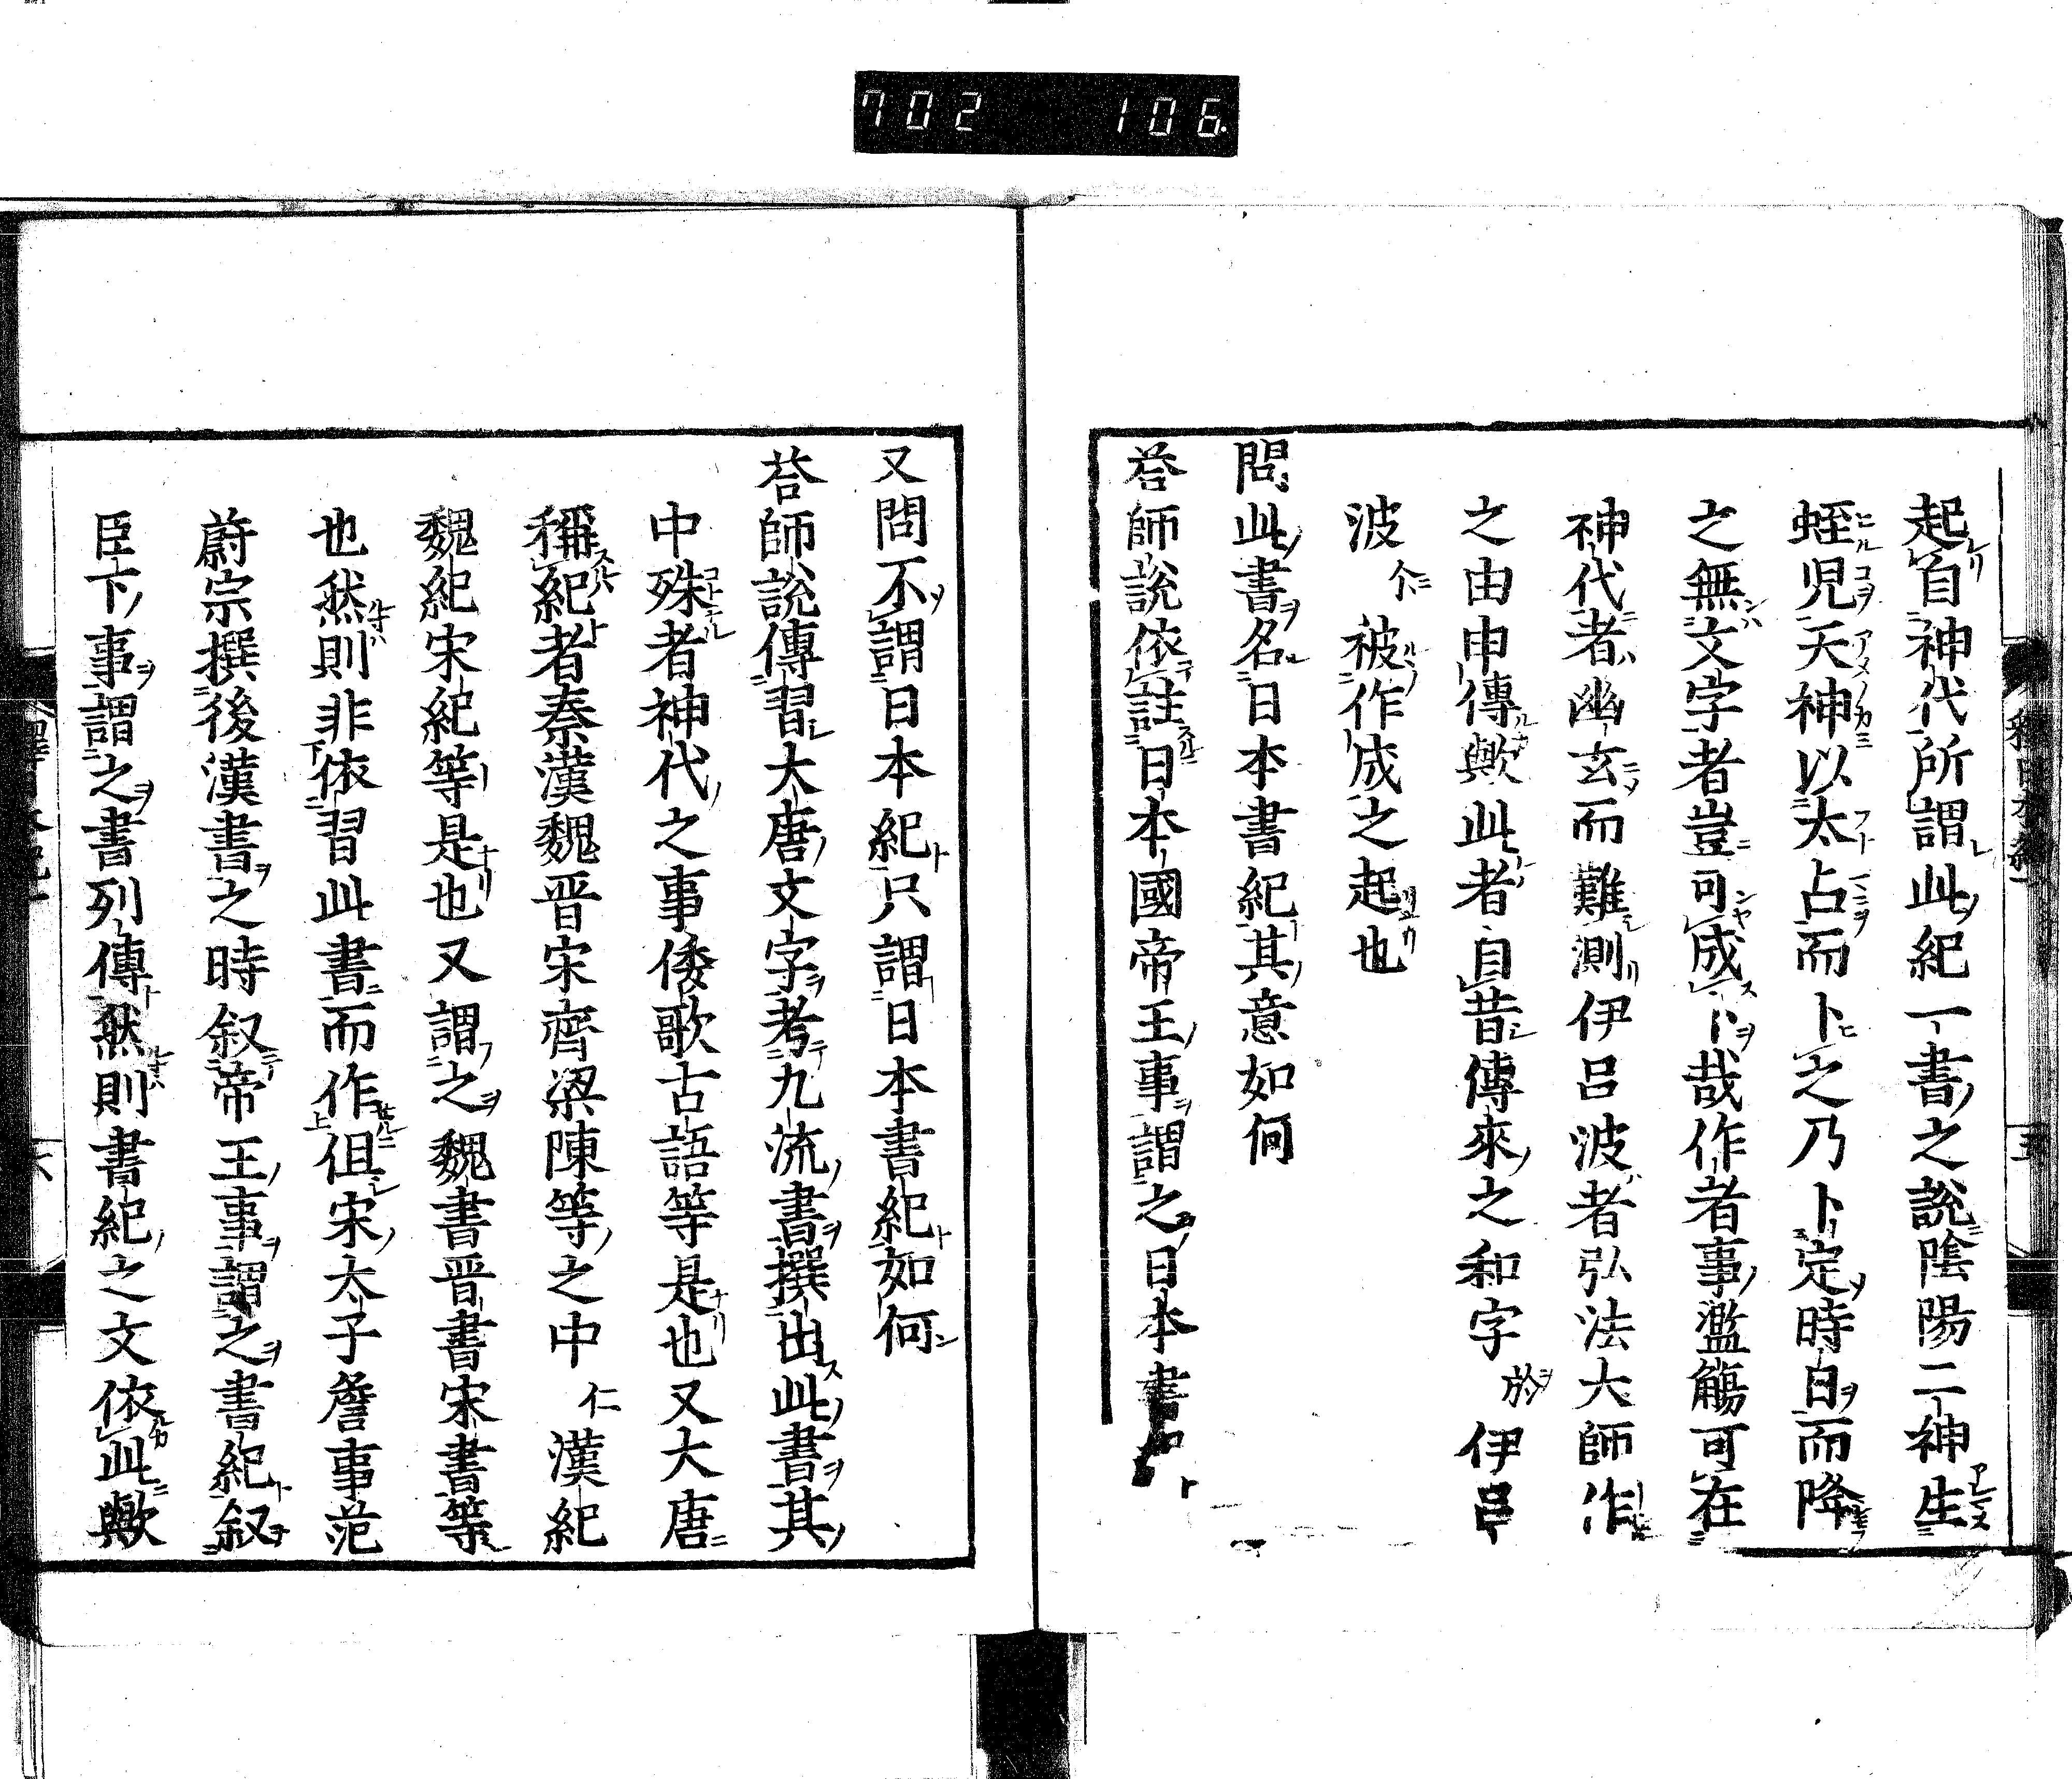 702 106
起自神代所謂此紀一書之說陰陽二神生
蛭児天神以太占而卜之乃卜定時日而降
之無文字者豈可成卜哉作者事濫觴可在
神代者幽玄而難測伊呂波者弘法大師作
之由申傳歟此者自昔傳來之和字於伊呂
波尒被作成之起也
問此書名日本書紀其意如何
荅師說依註日本國帝王事謂之日本書紀
又問不謂日本紀只謂日本書紀如何
荅師說傳習大唐文字考九流書撰出此書其
中殊者神代之事倭歌古語等是也又大唐
稱紀者秦漢魏晋宋齊梁陳等之中仁漢紀
魏紀宋紀等是也又謂之魏書晋書宋書等
也然則非依習此書而作但宋太子詹事范
蔚宗撰後漢書之時叙帝王事謂之書紀叙
臣下事謂之書列傳然則書紀之文依此歟